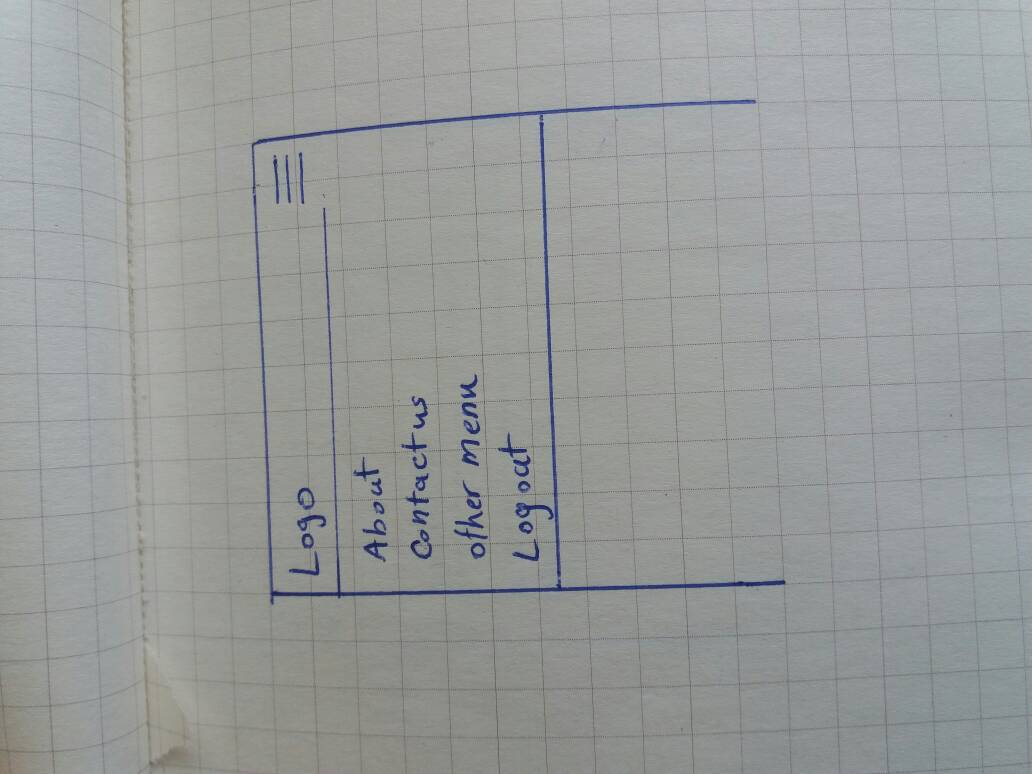 Logo
About
Contact us
other menu
Logout